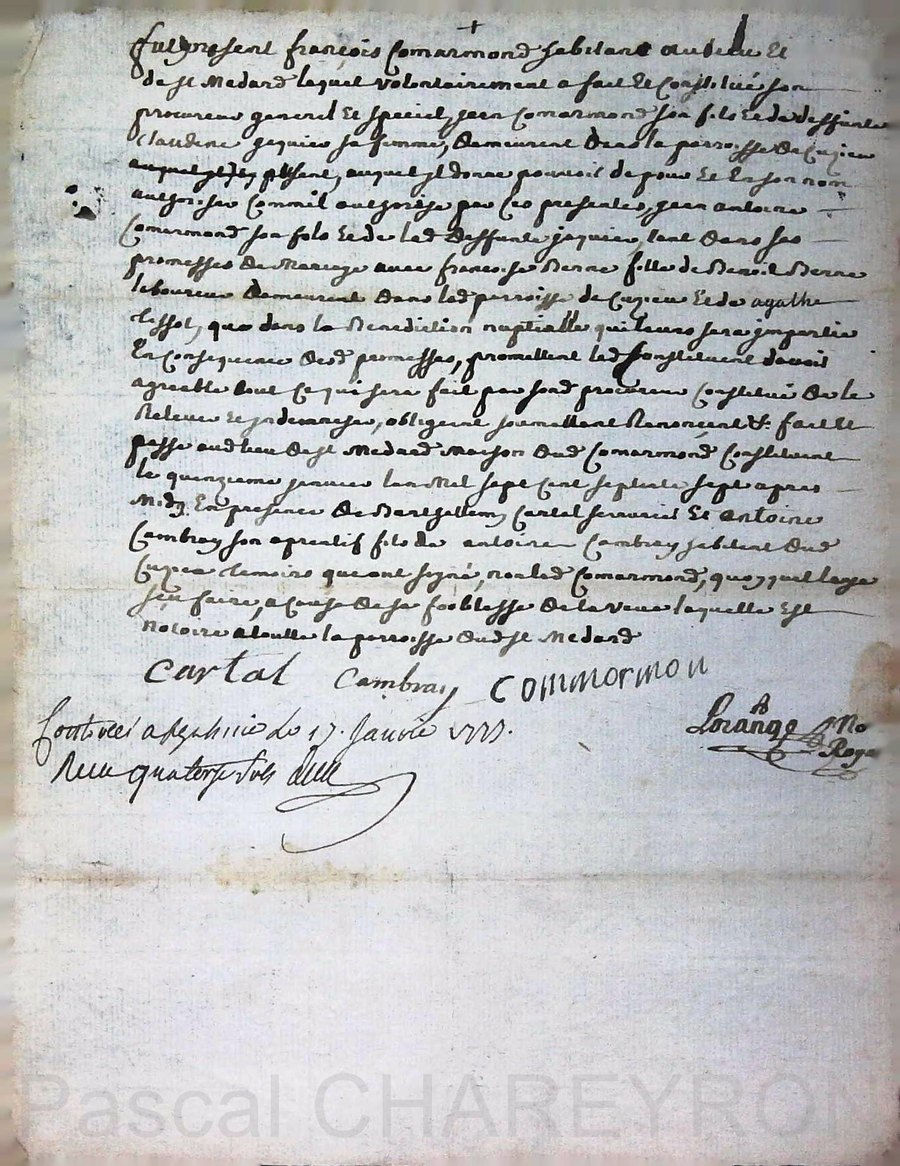 +
fut present françois Comarmond habitant au lieu Et
de st Medard lequel volontairement a fait Et Constitué son
procureur general Et special, jean Comarmond son fils Et de deffunte
Claudine jaquier sa femme, demeurent dans la parroisse de Cuzieu
present, auquel jl donne pouvoir de pour Et En son nom
authoriser Comme il authorise par Ces presentes, jean antoine
Comarmond son fils Et de lad. deffunte jaquier, tant dans ses
promesses de Mariage avec françoise Berne fille de Benoit Berne
laboureur demeurent dans lad perroisse de Cuzieu Et de agathe
tissot, que dans la Benediction nuptialle qui leurs sera jmpartie
En Consequence desd promesses, promettent led Constituent d'avoir
agreable tout Ce qui sera fait par sond procureur Constitué de le
Relever Et jndemniser, obligeant soumettant Renonçent &c fait Et
passé aud lieu de st Medard Maison dud Comarmond Constituent
le quinzieme janvier lan Mil sept Cent septente sept apres
Midy En presence de Barthellemy Cartal serrurier Et antoine
Cambray son apreatif fils de antoine Cambray habitent dud
Cuzieu temoins qui ont signé, non led Comarmond, quoy quil lasse
seu faire, a Cause de sa foiblesse de la veue laquelle Est
Notoire a toutte la parroisse dud st Medard
Cartal Cambray Commormon
Lorange No
Roya
Controllé a le 17. Janvier 1777.
Reçu quatorze sols
Pascal CHAREYRON